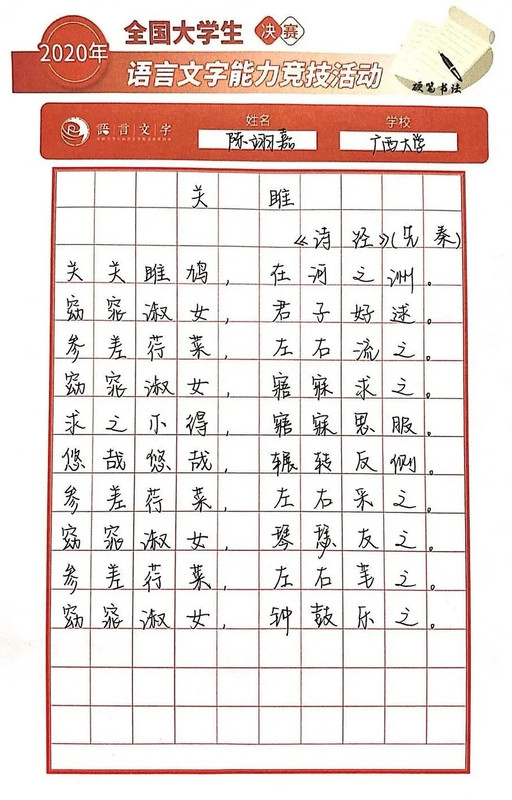 2020年
全国大学生 决赛
语言文字能力竞技活动
硬笔书法
語言文字
姓名
陈翊嘉
学校
广西大学
关雎
《诗经》(先秦)
关关雎鸠，在河之洲。
窈窕淑女，君子好逑。
参差荇菜，左右流之。
窈窕淑女，寤寐求之。
求之不得，寤寐思服。
悠哉悠哉，辗转反侧。
参差荇菜，左右采之。
窈窕淑女，琴瑟友之。
参差荇菜，左右芼之。
窈窕淑女，钟鼓乐之。